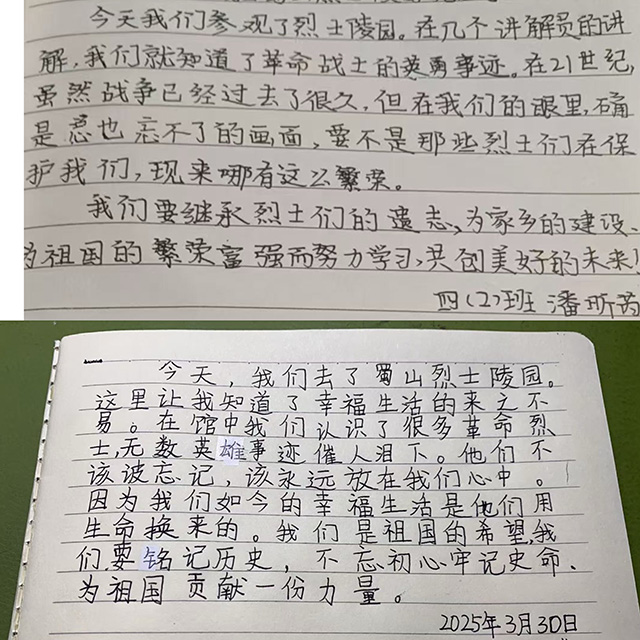 今天我们参观了烈士陵园。在几个讲解员的讲
解,我们就知道了革命战士的英勇事迹。在21世纪,
虽然战争已经过去了很久,但在我们的眼里,确
是忍也忘不了的画面,要不是那些烈士们在保
护我们,现来哪有这么繁荣。
我们要继承烈士们的遗志,为家乡的建设、
为祖国的繁荣富强而努力学习,共创美好的未来!
四(2)班 潘昕芮
今天,我们去了蜀山烈士陵园。
这里让我知道了幸福生活的来之不
易。在馆中我们认识了很多革命烈
士,无数英雄事迹催人泪下。他们不
该被忘记,该永远放在我们心中。
因为我们如今的幸福生活是他们用
生命换来的。我们是祖国的希望,我
们要铭记历史,不忘初心牢记史命、
为祖国贡献一份力量。
2025年3月30日